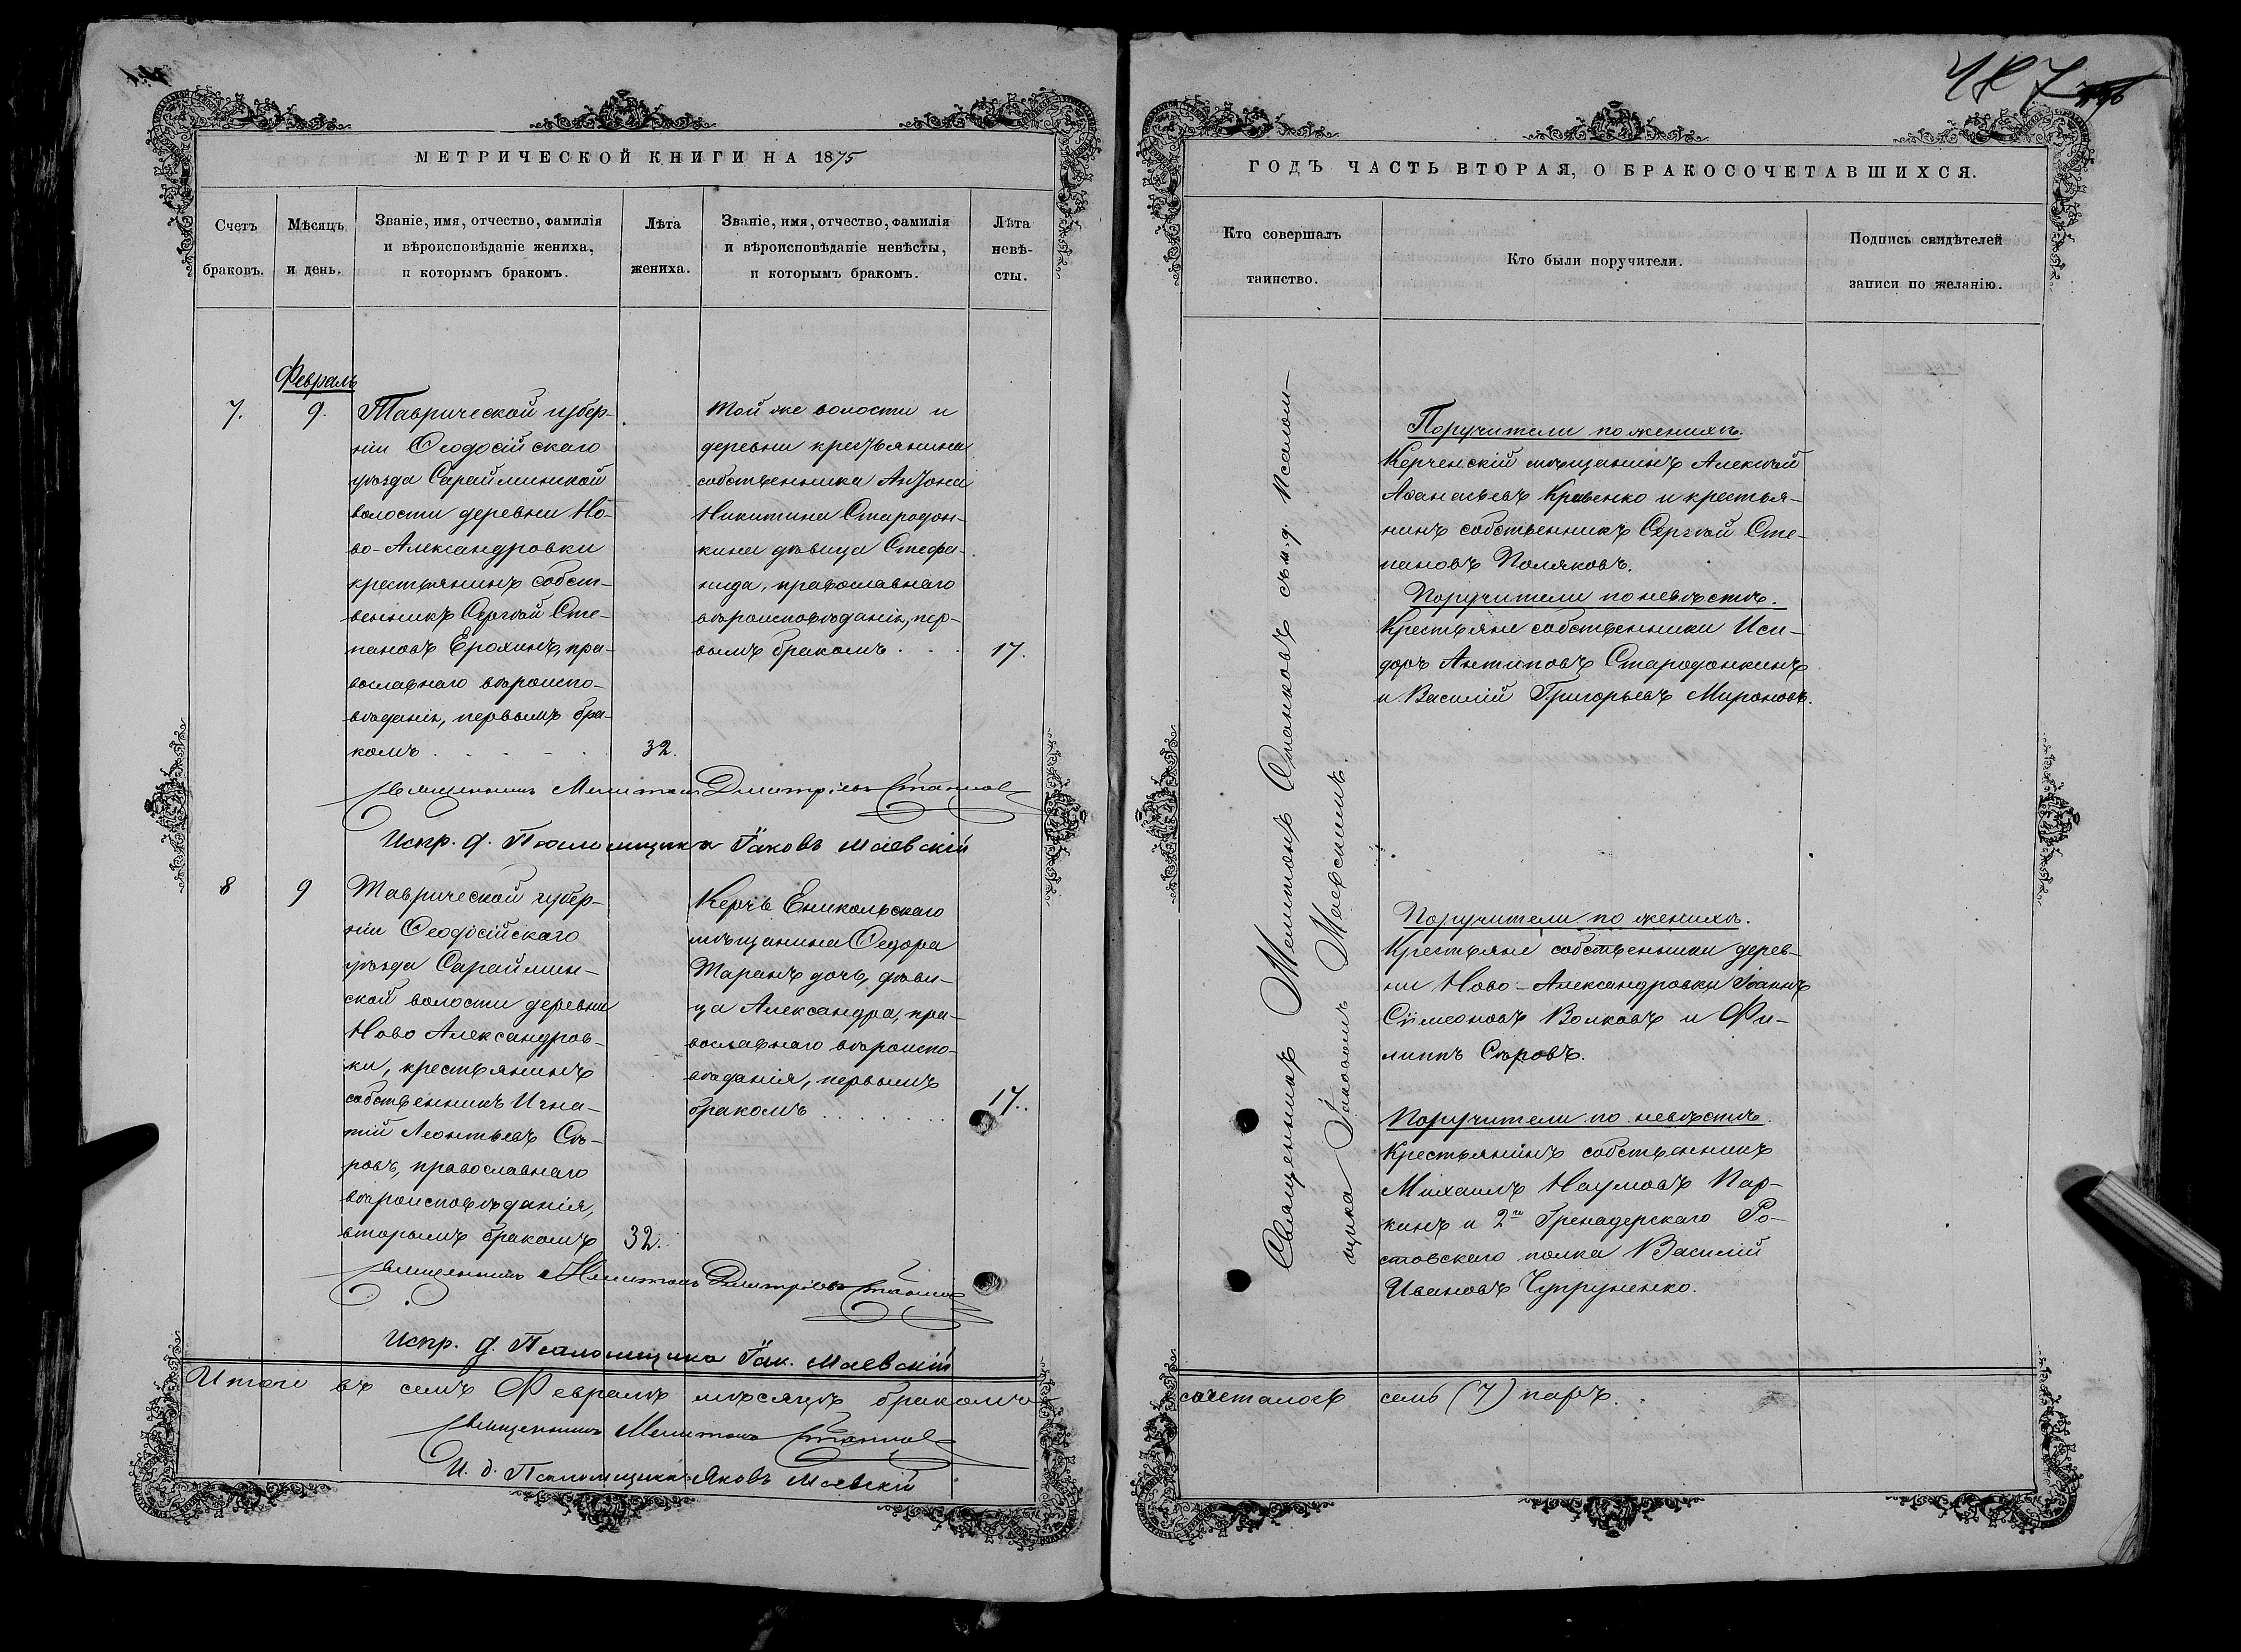 МЕТРИЧЕСКОЙ КНИГИ НА 1875
Счетъ браковъ.
Мѣсяцъ и день.
Званіе, имя, отчество, фамилія
и вѣроисповѣданіе жениха,
и которымъ бракомъ.
Лѣта жениха.
Званіе, имя, отчество, фамилія
и вѣроисповѣданіе невѣсты,
и которымъ бракомъ.
Лѣта невѣ-
сты.
Февраль
7.
9.
Таврической губер-
ніи Ѳеодосійскаго
уѣзда Сарайминской
волости деревни Но-
во-Александровки
крестьянинъ собст-
венникъ Сергѣй Сте-
пановъ Ерохинъ, пра-
вославнаго вѣроиспо-
вѣданія, первымъ бра-
комъ
32.
той же волости и
деревни крестьянина
собственника Антона
Никитина Стародон-
кина дѣвица Стефа-
нида, православнаго
вѣроисповѣданія, пер-
вымъ бракомъ
17.
Священникъ Мелитонъ Дмитріевъ
Испр. д. Псаломщика Іаковъ Маевскій
8
9
Таврической губер-
ніи Ѳеодосійскаго
уѣзда Сараймин-
ской волости деревни
Ново Александров-
ки, крестьянинъ
собственникъ Игна-
тій Леонтьевъ Сѣ-
ровъ, православнаго
вѣроисповѣданія,
вторымъ бракомъ
32.
Керчь Еникольскаго
мѣщанина Ѳедора
Таранъ дочь, дѣви-
ца Александра, пра-
вославнаго вѣроиспо-
вѣданія, первымъ
бракомъ
17.
Священникъ Мелитонъ Дмитріевъ
Испр. д. Псаломщика Іак. Маевскій
Итого въ семъ Февралѣ мѣсяцѣ бракомъ
Священникъ Мелитонъ
И. д. Псаломщика Яковъ Маевскій
487
ГОДЪ ЧАСТЬ ВТОРАЯ, О БРАКОСОЧЕТАВШИХСЯ.
Кто совершалъ
таинство.
Кто были поручители.
Подпись свидѣтелей
записи по желанію.
Священникъ Мелитонъ съ и. д. Псалом-
щика Іаковомъ Маевскимъ.
Поручители по женихѣ.
Керченскій мѣщанинъ Алексѣй
Аѳанасьевъ Кравенко и крестья-
нинъ собственникъ Сергѣй Сте-
пановъ Поляковъ.
Поручители по невѣстѣ.
Крестьяне собственники Иси-
доръ Антиповъ Стародонкинъ
и Василій Григорьевъ Мироновъ.
Поручители по женихѣ.
Крестьяне собственники дерев-
ни Ново-Александровки Іоаннъ
Сѵмеоновъ Волковъ и Фи-
липпъ Сѣровъ.
Поручители по невѣстѣ.
Крестьянинъ собственникъ
Михаилъ Наумовъ Пар-
кинъ и 2го Гренадерскаго Ро-
стовскаго полка Василій
Ивановъ Чупруненко.
сочеталось семь (7) паръ.